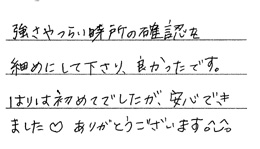 強さやつらい時所の確認を
細めにして下さり、良かったです。
はりは初めてでしたが、安心でき
ました♡ ありがとうございます。